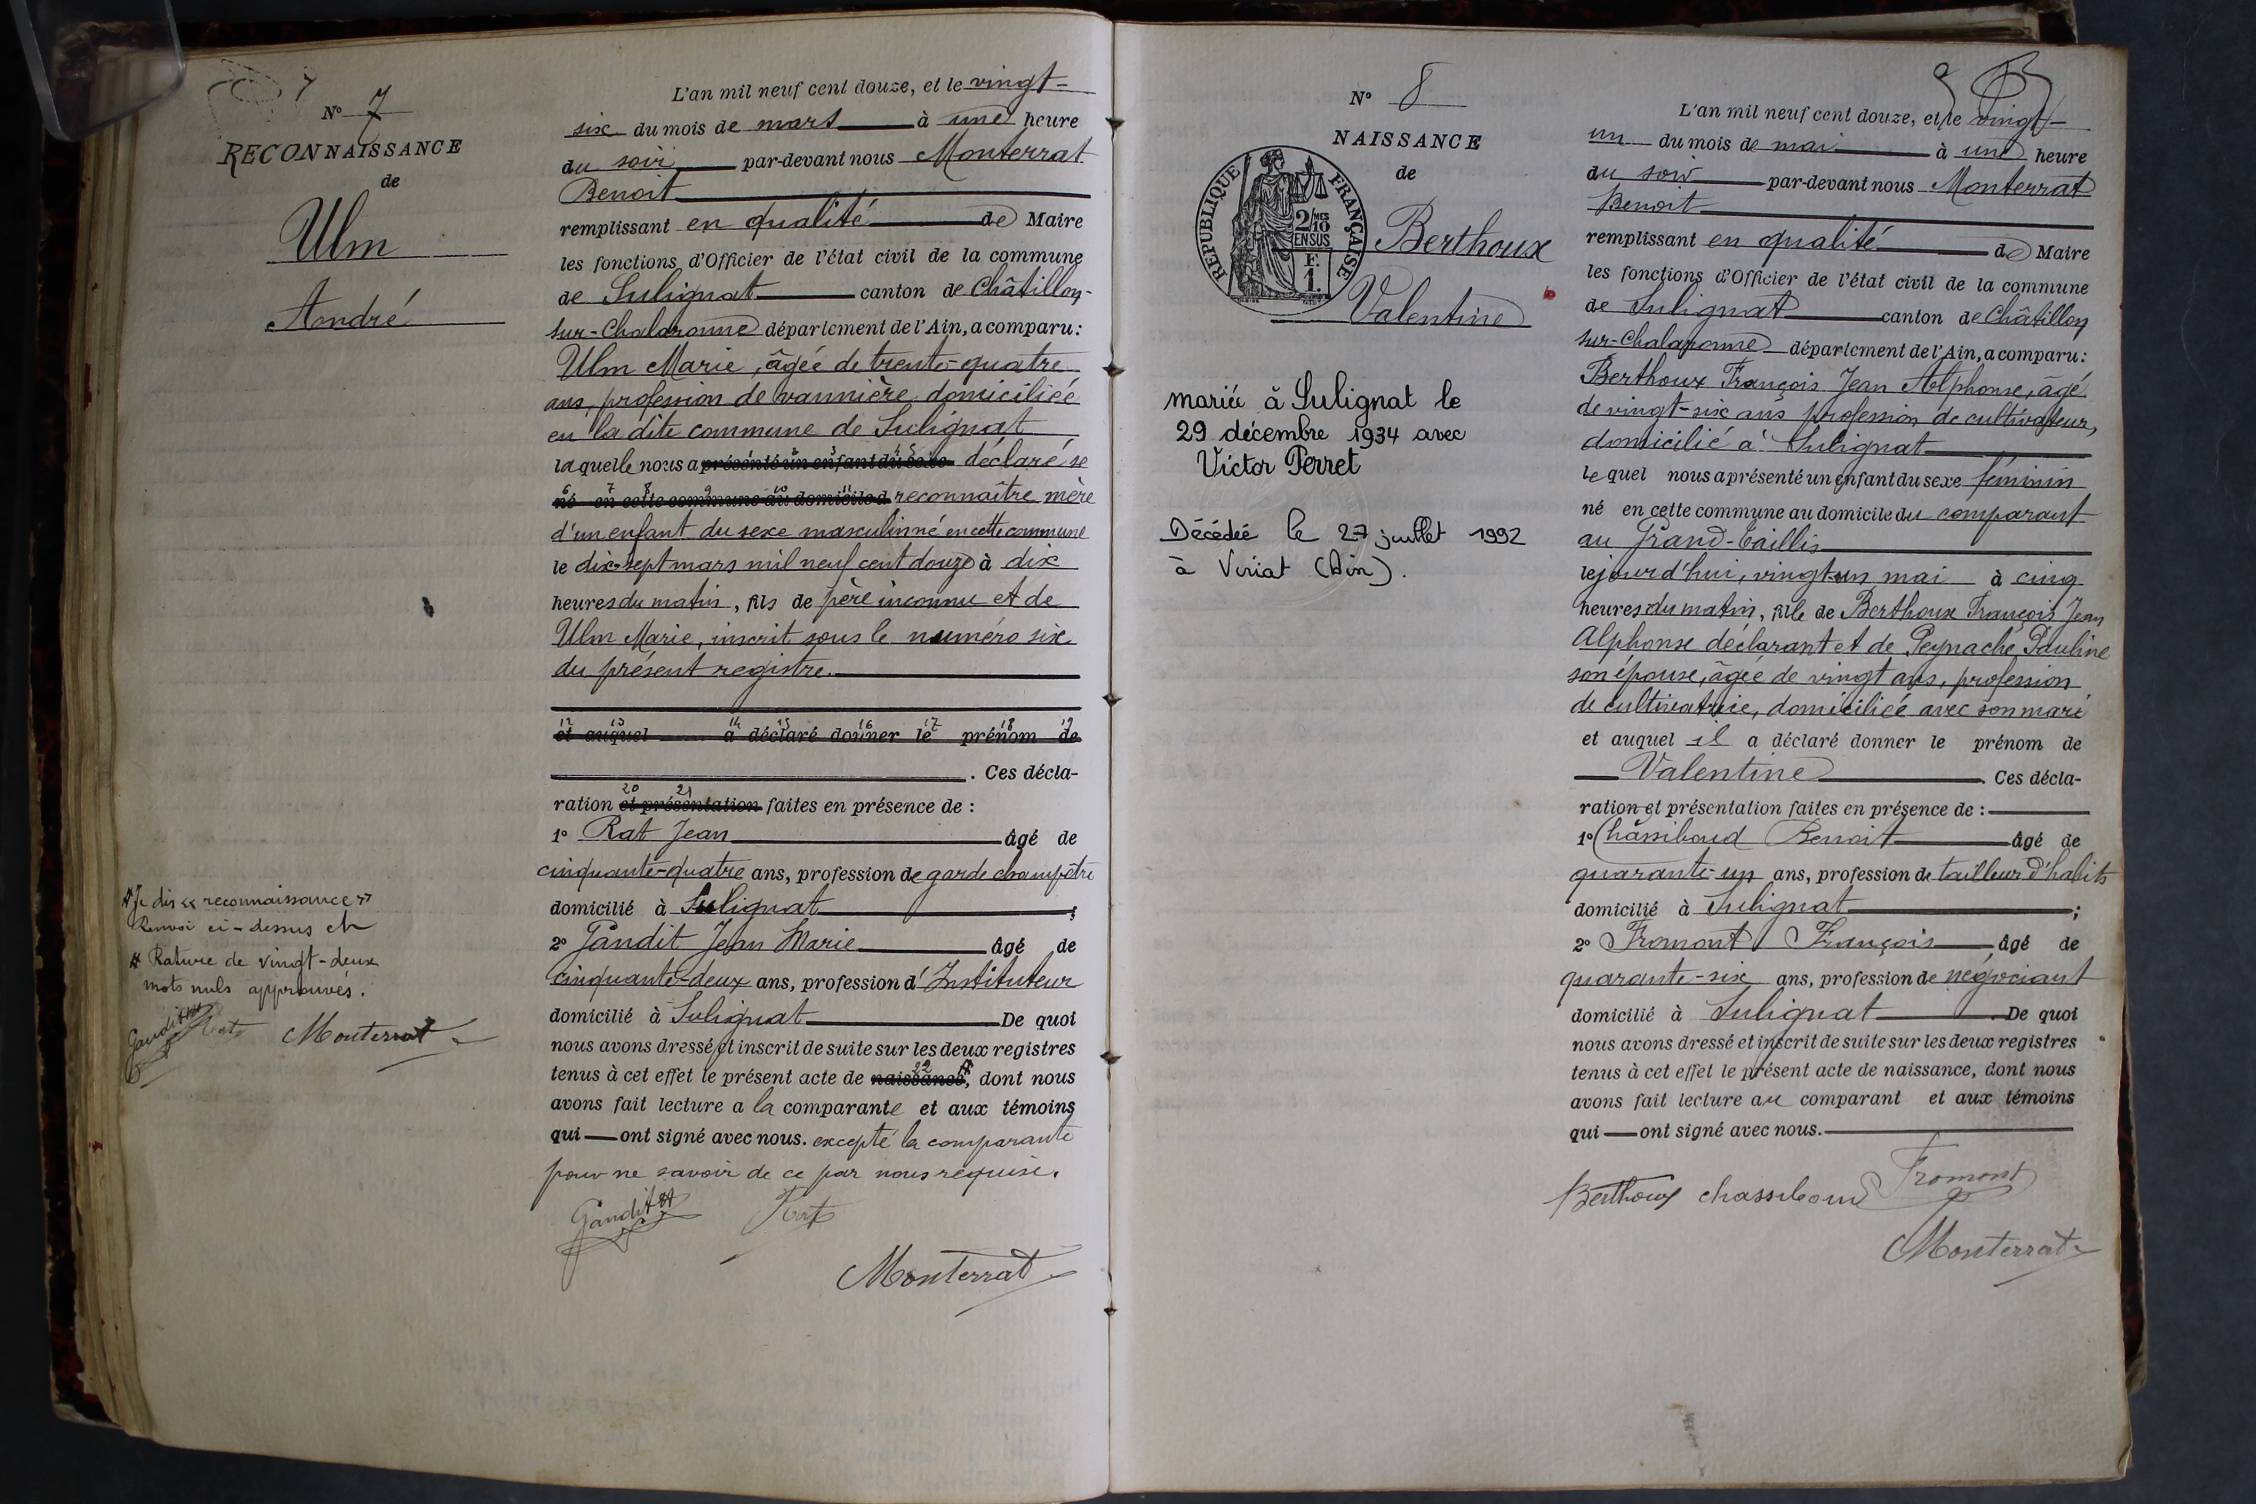 7
N° 7
RECONNAISSANCE
de
Ulm
André
L'an mil neuf cent douze, et le vingt-
six du mois de mars à une heure
du soir par-devant nous Monterrat
Benoit
remplissant en qualité de Maire
les fonctions d'Officier de l'état civil de la commune
de Sulignat canton de Châtillon-
sur-Chalaronne département de l'Ain, a comparu:
Ulm Marie, âgée de trente-quatre
ans, profession de vannière domiciliée
en la dite commune de Sulignat
laquelle nous a présenté un enfant du sexe déclaré se
né en cette commune au domicile d reconnaître mère
d'un enfant du sexe masculin né en cette commune
le dix-sept mars mil neuf cent douze à dix
heures du matin, fils de père inconnu et de
Ulm Marie, inscrit sous le numéro six
du présent registre.
12 13 14 15 16 17 18 19
et auquel a déclaré donner le prénom de
. Ces décla-
20 21
ration et présentation faites en présence de :
1° Rat Jean âgé de
cinquante-quatre ans, profession de garde champêtre
domicilié à Sulignat ;
2° Gandit Jean Marie âgé de
cinquante-deux ans, profession d'Instituteur
domicilié à Sulignat De quoi
nous avons dressé et inscrit de suite sur les deux registres
tenus à cet effet le présent acte de naissance, dont nous
avons fait lecture a la comparante et aux témoins
qui ont signé avec nous. excepté la comparante
pour ne savoir de ce par nous requise.
Gandit Rat
Monterrat
Je dis « reconnaissance »
Renvoi ci-dessus et
Rature de vingt-deux
mots nuls approuvés.
Gandit Rat Monterrat
N° 8
NAISSANCE
de
REPUBLIQUE FRANÇAISE
2/MES
10
EN SUS
F.
1.
Berthoux
Valentine
mariée à Sulignat le
29 décembre 1934 avec
Victor Perret
Décédée le 27 juillet 1992
à Viriat (Ain).
L'an mil neuf cent douze, et le vingt-
un du mois de mai à une heure
du soir par-devant nous Monterrat
Benoit
remplissant en qualité de Maire
les fonctions d'Officier de l'état civil de la commune
de Sulignat canton de Châtillon
sur-Chalaronne département de l'Ain, a comparu:
Berthoux François Jean Alphonse, âgé
de vingt-six ans profession de cultivateur,
domicilié à Sulignat
lequel nous a présenté un enfant du sexe féminin
né en cette commune au domicile du comparant
au Grand-Taillis
lejourd'hui, vingt-un mai à cinq
heures du matin, fille de Berthoux François Jean
Alphonse déclarant et de Peynache Pauline
son épouse, âgée de vingt ans, profession
de cultivatrice, domiciliée avec son mari
et auquel il a déclaré donner le prénom de
Valentine . Ces décla-
ration et présentation faites en présence de :
1° Chassiboud Benoit âgé de
quarante-un ans, profession de tailleur d'habits
domicilié à Sulignat ;
2° Fromont François âgé de
quarante-six ans, profession de négociant
domicilié à Sulignat . De quoi
nous avons dressé et inscrit de suite sur les deux registres
tenus à cet effet le présent acte de naissance, dont nous
avons fait lecture au comparant et aux témoins
qui ont signé avec nous.
Berthoux chassiboud Fromont
Monterrat